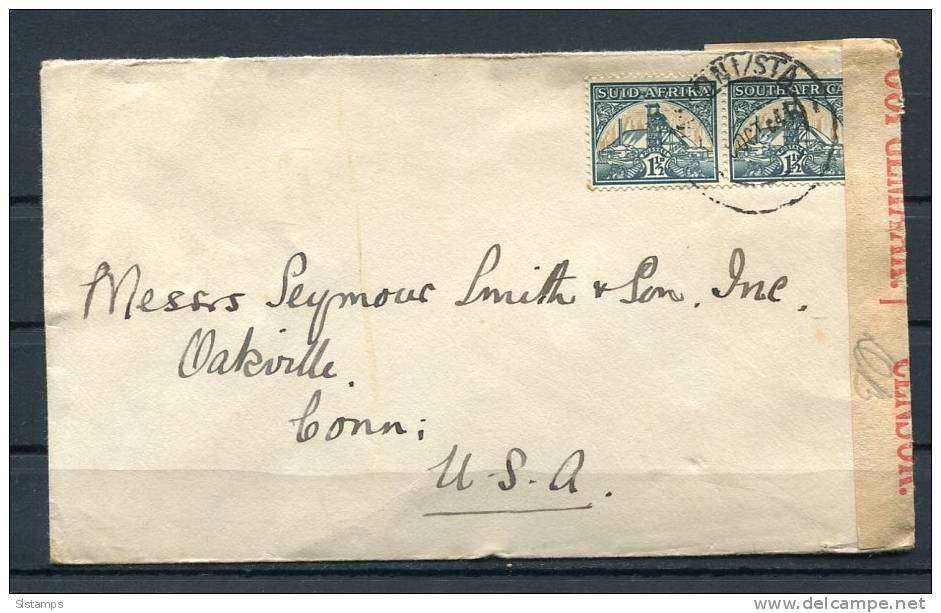 SUID-AFRIKA SOUTH AFRICA
1½ 1½
Messrs Seymour Smith & Son. Inc.
Oakville.
Conn;
U.S.A.
CENSOR.
Slstamps
delcampe.net